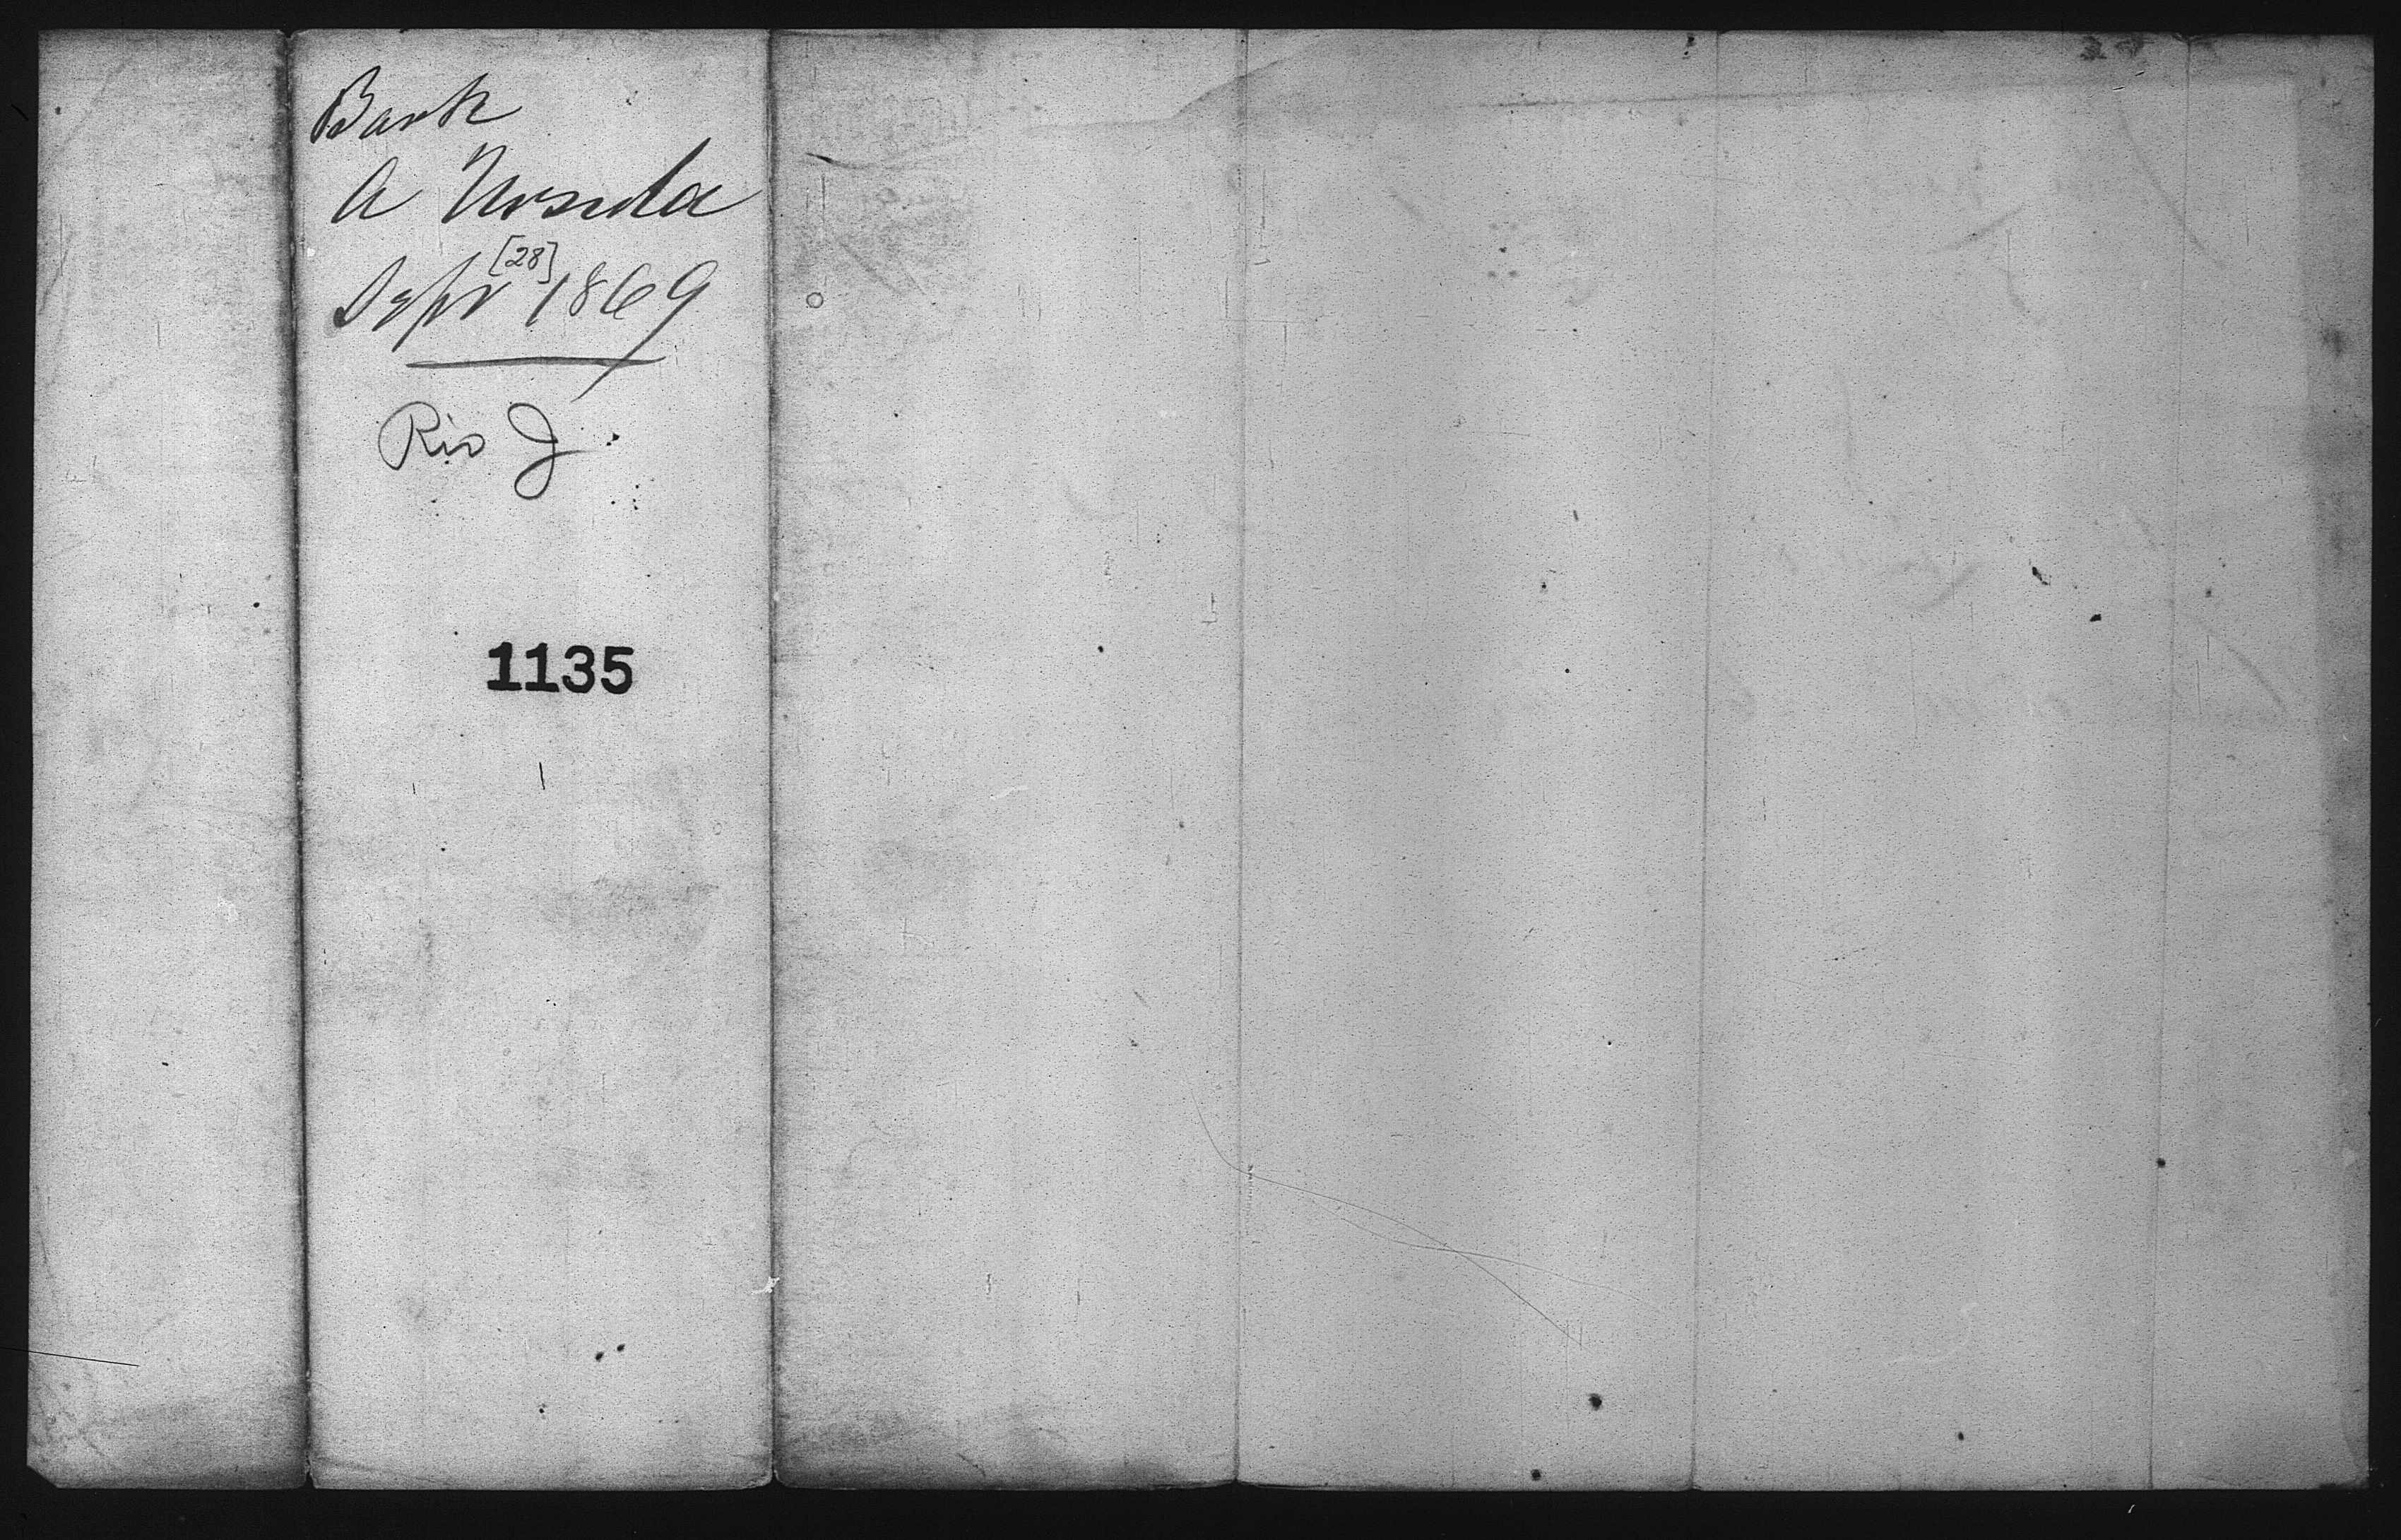 Bark
A Ursula
Sept [28] 1869
Rio J
1135